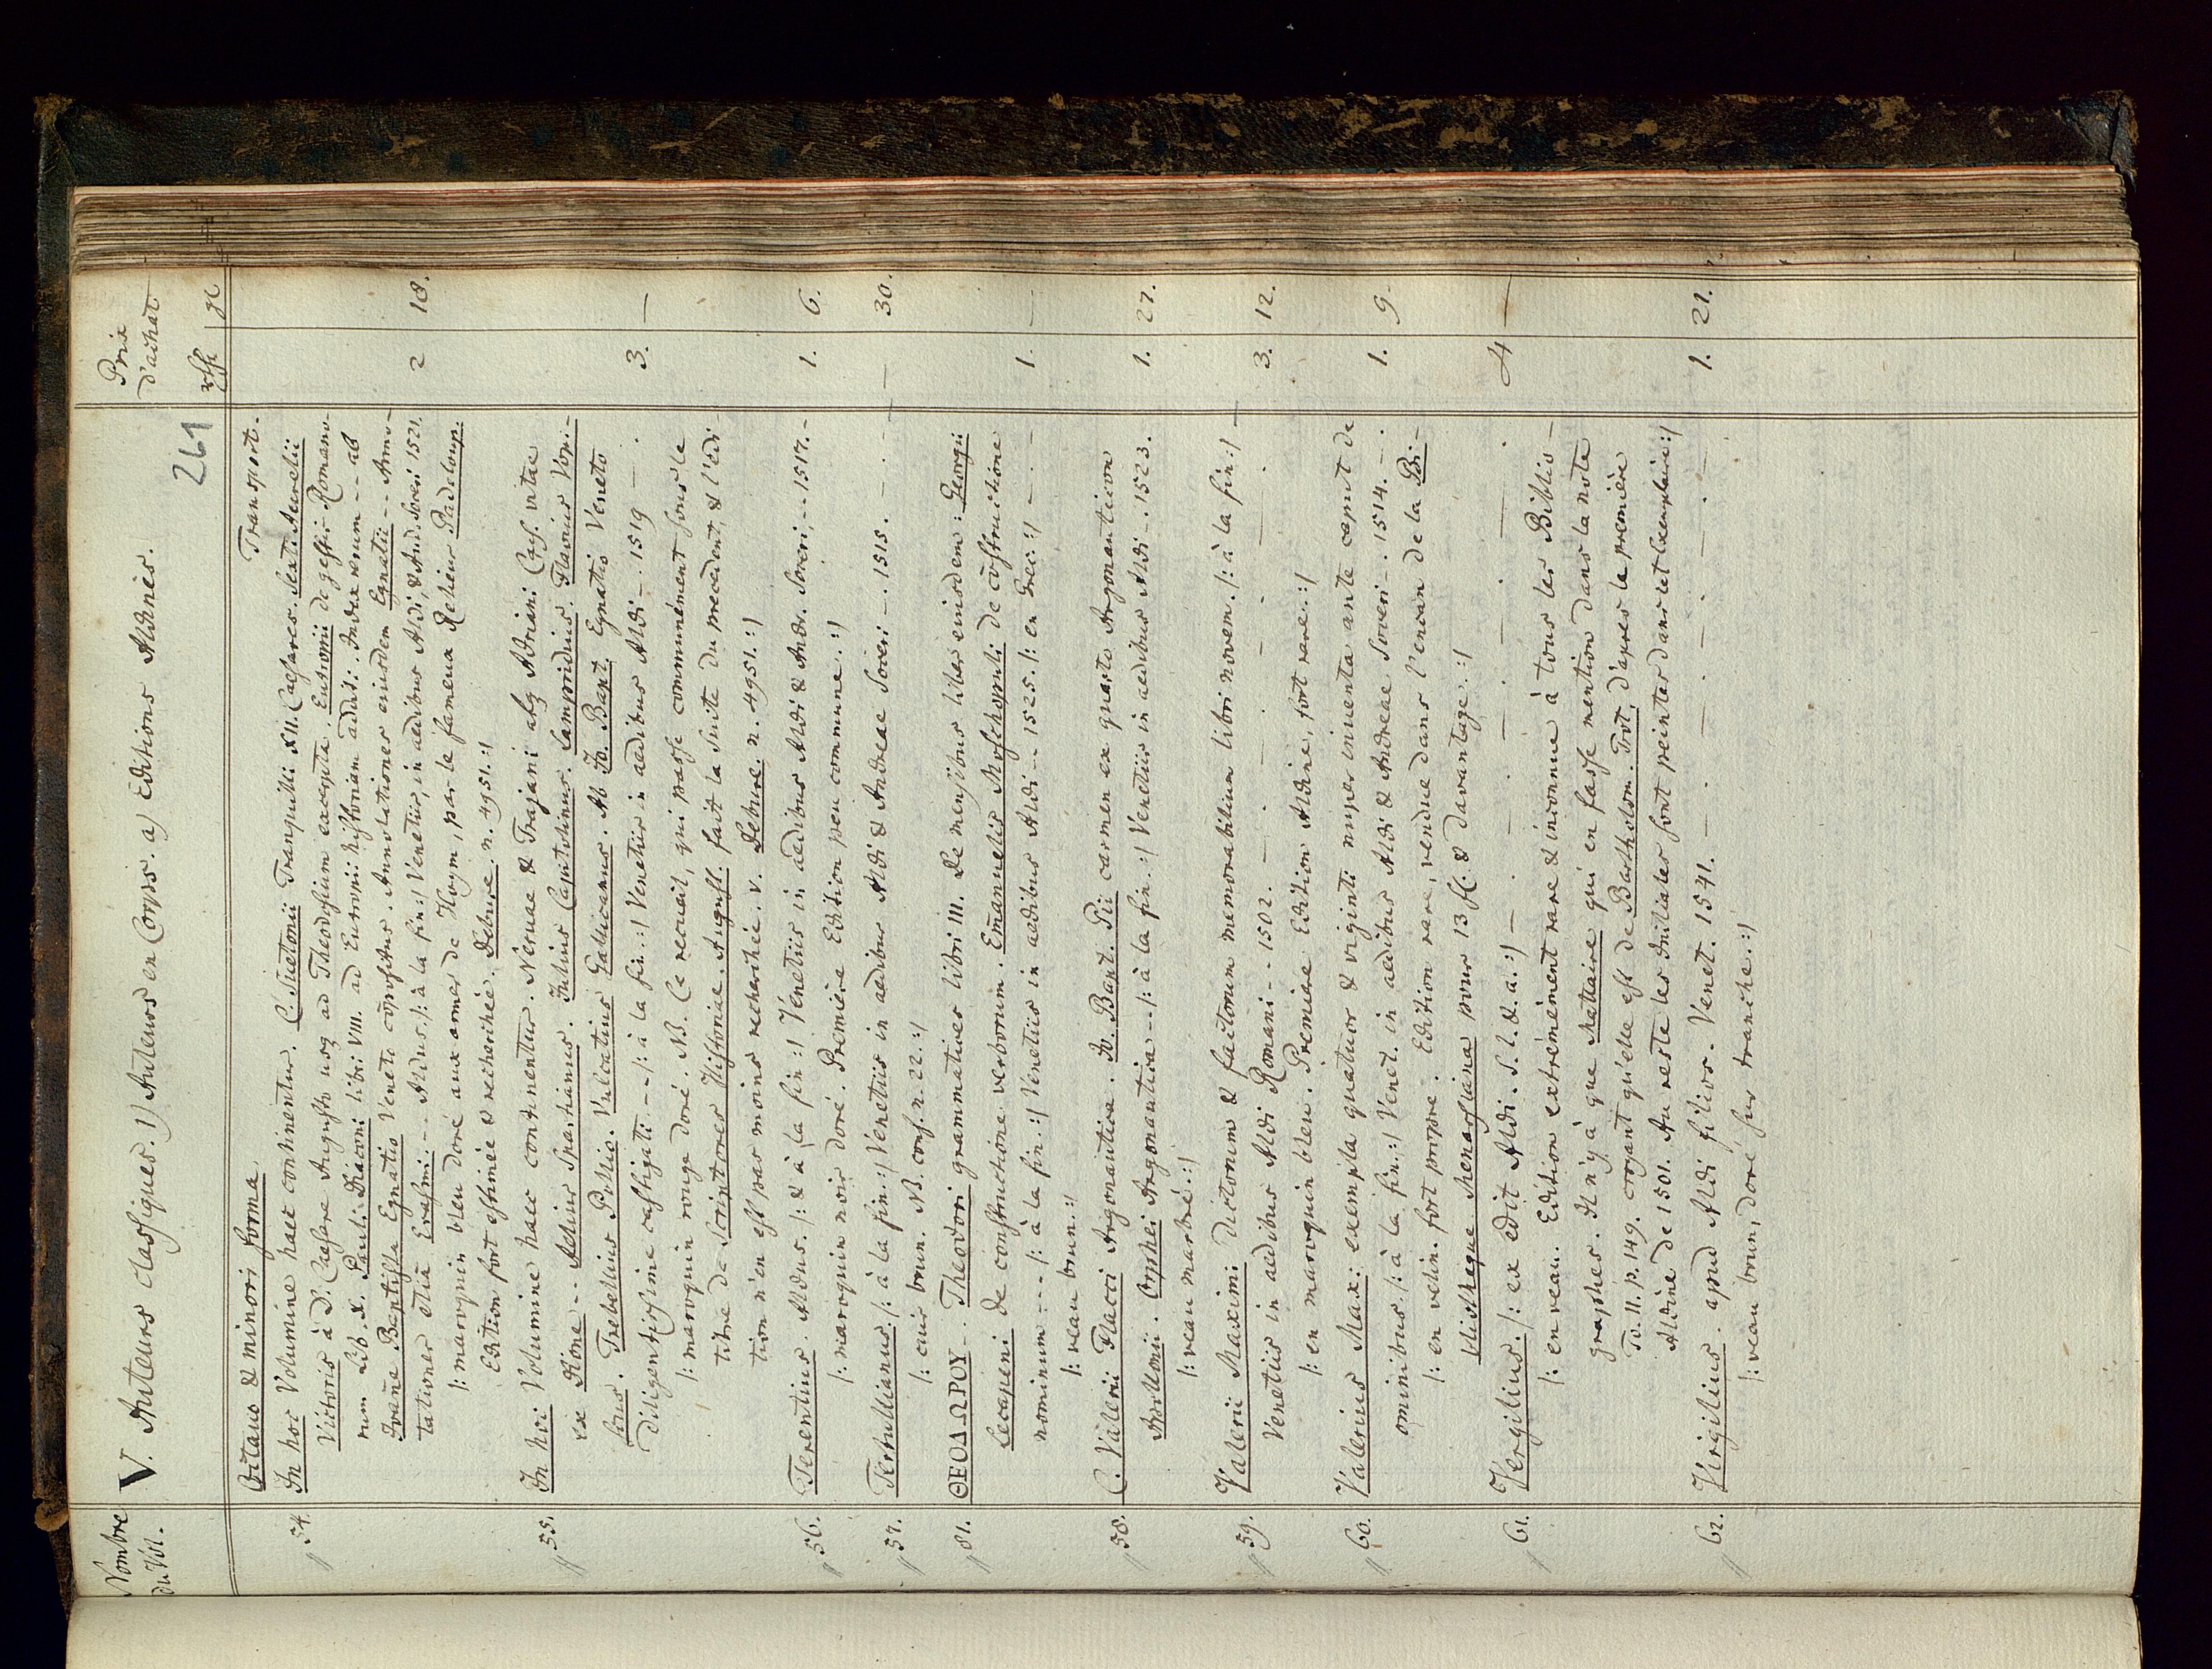 Nombre du Vol.
V. Auteurs classiques. 1) Auteurs en Corps. a) Editions Aldines.
261
Prix d'achat
rth gl
Octavo & minori forma. Transport.
54. In hoc Volumine haec continentur. C. Suetonii Tranquilli XII. Caesares. Sexti Aurelii
Victoris à D. Caesare Augusto usq ad Theodosium excerpta. Eutropii de gestis Romano-
rum Lib. X. Pauli Diaconi libri VIII. ad Eutropii historiam additi. Index rerum -- ab
Ioañe Baptista Egnatio Veneto cōpositus. Annotationes eiusdem Egnatii -- Anno-
tationes etiā Erasmi -- Aldus. /: à la fin :/ Venetiis, in aedibus Aldi, & And. Soceri 1521. 2 18.
/: maroquin bleu doré aux armes de Hoym, par le fameux Relieur Padeloup.
Edition fort estimée & recherchée. Debure. n. 4951. :/
55. In hoc Volumine haec continentur. Nervae & Trajani atq Adriani Caes. vitae
ex Dione -- Aelius Spartianus. Iulius Capitolinus. Lampridius. Flavius Vopi-
scus. Trebellius Pollio. Vulcatius Gallicanus. Ab Io. Bapt. Egnatio Veneto
diligentissime castigati -- /: à la fin. :/ Venetiis in aedibus Aldi -. 1519 — . 3. —
/: maroquin rouge doré. NB. Ce recueil, qui passe communément sous le
titre de Scriptores Historiae August. fait la suite du precedent, & l'édi-
tion n'en est pas moins recherchée. v. Debure. n. 4951. :/
56. Terentius. Aldus. /: & à la fin :/ Venetiis in aedibus Aldi & Andr. Soceri, -- 1517. - 1. 6.
/: marroquin noir doré. Premiére Edition peu commune. :/
57. Tertullianus. /: à la fin. :/ Venetiis in aedibus Aldi & Andreae Soceri -. 1515. — . — — 30.
/: cuir brun. NB. conf. n. 22. :/
81. ΘΕΟΔΩΡΟΥ. Theodori grammatices libri III. De mensibus liber eiusdem: Georgii
Lecapeni de constructione verborum. Emanuelis Moschopuli de cōstructione
nominum -- /: à la fin. :/ Venetiis in aedibus Aldi -- 1525. /: en Grec. :/ — . - 1. —
/: veau brun. :/
58. C. Valerii Flacci Argonautica. Io. Bapt. Pii carmen ex quarto Argonauticon
Apollonii. Orphei Argonautica -- /: à la fin. :/ Venetiis in aedibus Aldi -. 1523. - 1. 27.
/: veau marbré. :/
59. Valerii Maximi dictorum & factorum memorabilium libri novem. /: à la fin :/
Venetiis in aedibus Aldi Romani -- 1502. — . — . — . — . 3. 12.
/: en maroquin bleu. Premiére Edition Aldine, fort rare. :/
60. Valerius Max: exempla quatuor & viginti nuper inuenta ante caput de
ominibus. /: à la fin. :/ Venet. in aedibus Aldi & Andreae Soceri -. 1514. — . 1. 9.
/: en velin. fort propre. Edition rare, vendue dans l'encan de la Bi-
bliotheque Menarsiana pour 13 fl. & davantage. :/
61. Vergilius. /: ex edit Aldi. S. l. & a. :/ — . — . — . — . — . 4 —
/: en veau. Edition extrémément rare & inconnue à tous les Biblio-
graphes. Il n'y à que Maittaire qui en fasse mention dans la note
To. II. p. 149. croyant qu'elle est de Bartholom. Trot, d'apres la premiére
Aldine de 1501. Au reste les Initiales sont peintes dans cet Exemplaire :/
62. Virgilius. apud Aldi filios. Venet. 1541. — . — . — . — . — 1. 21.
/: veau brun, doré sur tranche. :/